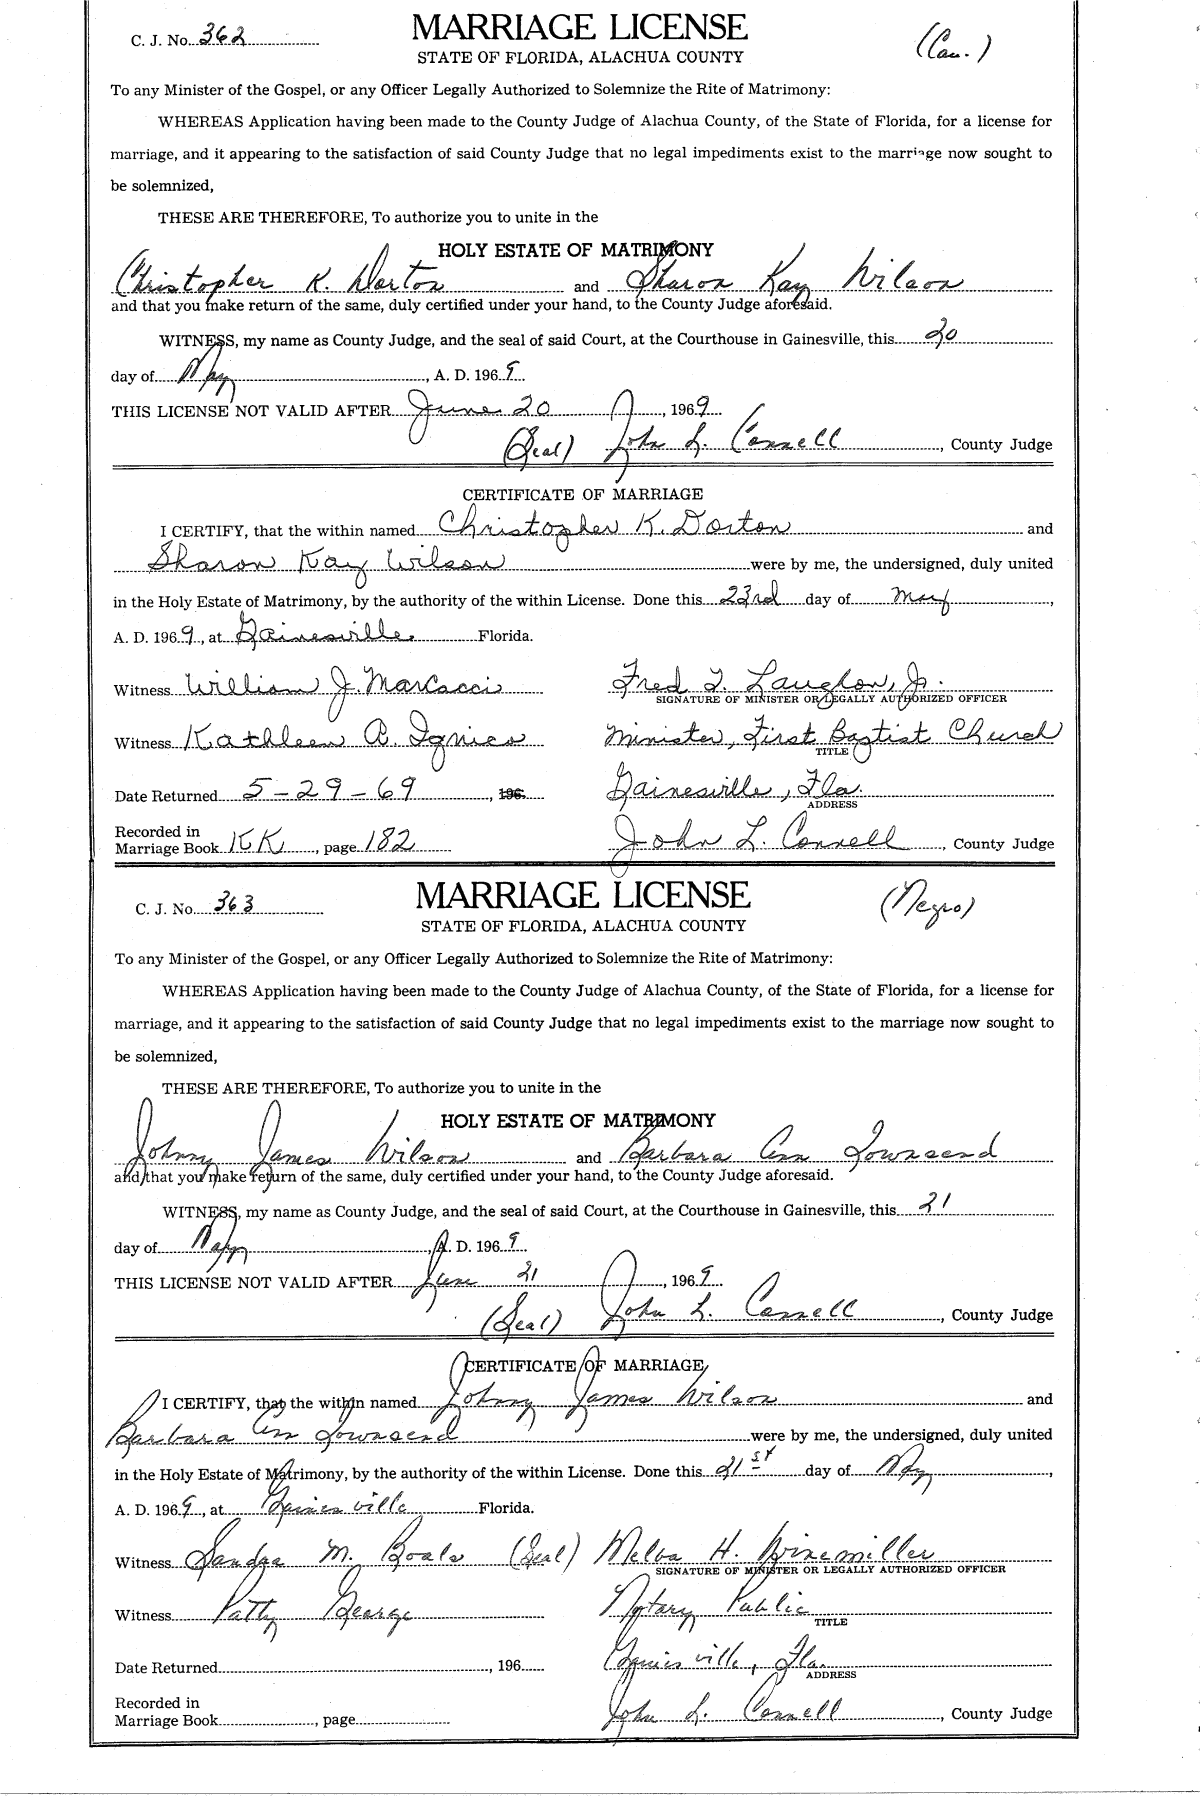 C. J. No. 362
MARRIAGE LICENSE
(Cau.)
STATE OF FLORIDA, ALACHUA COUNTY
To any Minister of the Gospel, or any Officer Legally Authorized to Solemnize the Rite of Matrimony:
WHEREAS Application having been made to the County Judge of Alachua County, of the State of Florida, for a license for
marriage, and it appearing to the satisfaction of said County Judge that no legal impediments exist to the marriage now sought to
be solemnized,
THESE ARE THEREFORE, To authorize you to unite in the
HOLY ESTATE OF MATRIMONY
Christopher K. Dorton and Sharon Kay Wilson
and that you make return of the same, duly certified under your hand, to the County Judge aforesaid.
WITNESS, my name as County Judge, and the seal of said Court, at the Courthouse in Gainesville, this 20
day of May, A. D. 1969
THIS LICENSE NOT VALID AFTER June 20, 1969
(Seal) John L. Connell, County Judge
CERTIFICATE OF MARRIAGE
I CERTIFY, that the within named Christopher K. Dorton and
Sharon Kay Wilson were by me, the undersigned, duly united
in the Holy Estate of Matrimony, by the authority of the within License. Done this 23rd day of May,
A. D. 1969, at Gainesville Florida.
Witness William J. Marcacci Fred T. Laughon, Jr.
SIGNATURE OF MINISTER OR LEGALLY AUTHORIZED OFFICER
Witness Kathleen A. Ignico Minister, First Baptist Church
TITLE
Date Returned 5-29-69, 196 Gainesville, Fla.
ADDRESS
Recorded in
Marriage Book KK, page 182 John L. Connell, County Judge
C. J. No. 363
MARRIAGE LICENSE
(Negro)
STATE OF FLORIDA, ALACHUA COUNTY
To any Minister of the Gospel, or any Officer Legally Authorized to Solemnize the Rite of Matrimony:
WHEREAS Application having been made to the County Judge of Alachua County, of the State of Florida, for a license for
marriage, and it appearing to the satisfaction of said County Judge that no legal impediments exist to the marriage now sought to
be solemnized,
THESE ARE THEREFORE, To authorize you to unite in the
HOLY ESTATE OF MATRIMONY
Johnny James Wilson and Barbara Ann Townsend
and that you make return of the same, duly certified under your hand, to the County Judge aforesaid.
WITNESS, my name as County Judge, and the seal of said Court, at the Courthouse in Gainesville, this 21
day of May, A. D. 1969
THIS LICENSE NOT VALID AFTER June 21, 1969
(Seal) John L. Connell, County Judge
CERTIFICATE OF MARRIAGE
I CERTIFY, that the within named Johnny James Wilson and
Barbara Ann Townsend were by me, the undersigned, duly united
in the Holy Estate of Matrimony, by the authority of the within License. Done this 21st day of May,
A. D. 1969, at Gainesville Florida.
Witness Sandra M. Boals (Seal) Melba H. Winemiller
SIGNATURE OF MINISTER OR LEGALLY AUTHORIZED OFFICER
Witness Patty George Notary Public
TITLE
Date Returned, 196 Gainesville, Fla.
ADDRESS
Recorded in
Marriage Book, page John L. Connell, County Judge